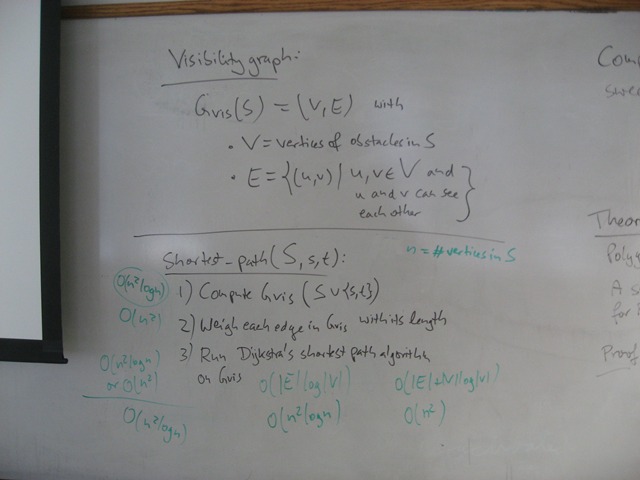 Visibility graph:
Gvis(S) = (V, E) with
• V = vertices of obstacles in S
• E = {(u,v) | u,v ∈ V and
u and v can see
each other}
Shortest-path(S, s, t):
n = # vertices in S
O(n² log n) 1) Compute Gvis (S ∪ {s,t})
O(n²) 2) Weigh each edge in Gvis with its length
O(n² log n) 3) Run Dijkstra's shortest path algorithm
or O(n²) on Gvis O(|E| log |V|) O(|E|+|V| log |V|)
O(n² log n) O(n² log n) O(n²)
Com
swee
Theor
Polyg
A s
for
Proof